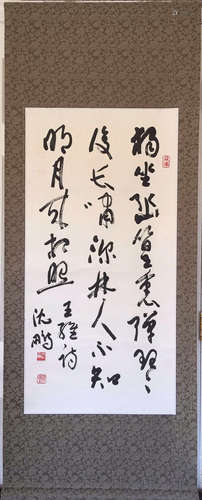 独坐幽篁里弹琴
复长啸深林人不知
明月来相照
王维诗
沈鹏